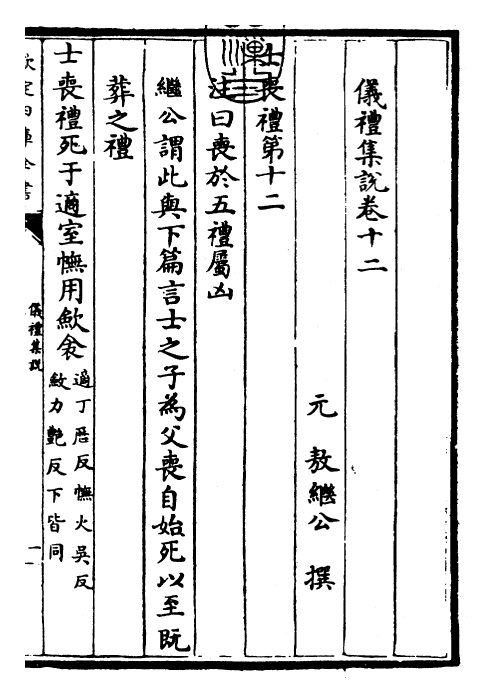 儀禮集說卷十二
元 敖繼公 撰
士喪禮第十二
注曰喪於五禮屬凶
繼公謂此與下篇言士之子為父喪自始死以至既
葬之禮
士喪禮死于適室幠用歛衾適丁厯反幠火吳反
歛力艷反下皆同
欽定四庫全書
儀禮集說
一